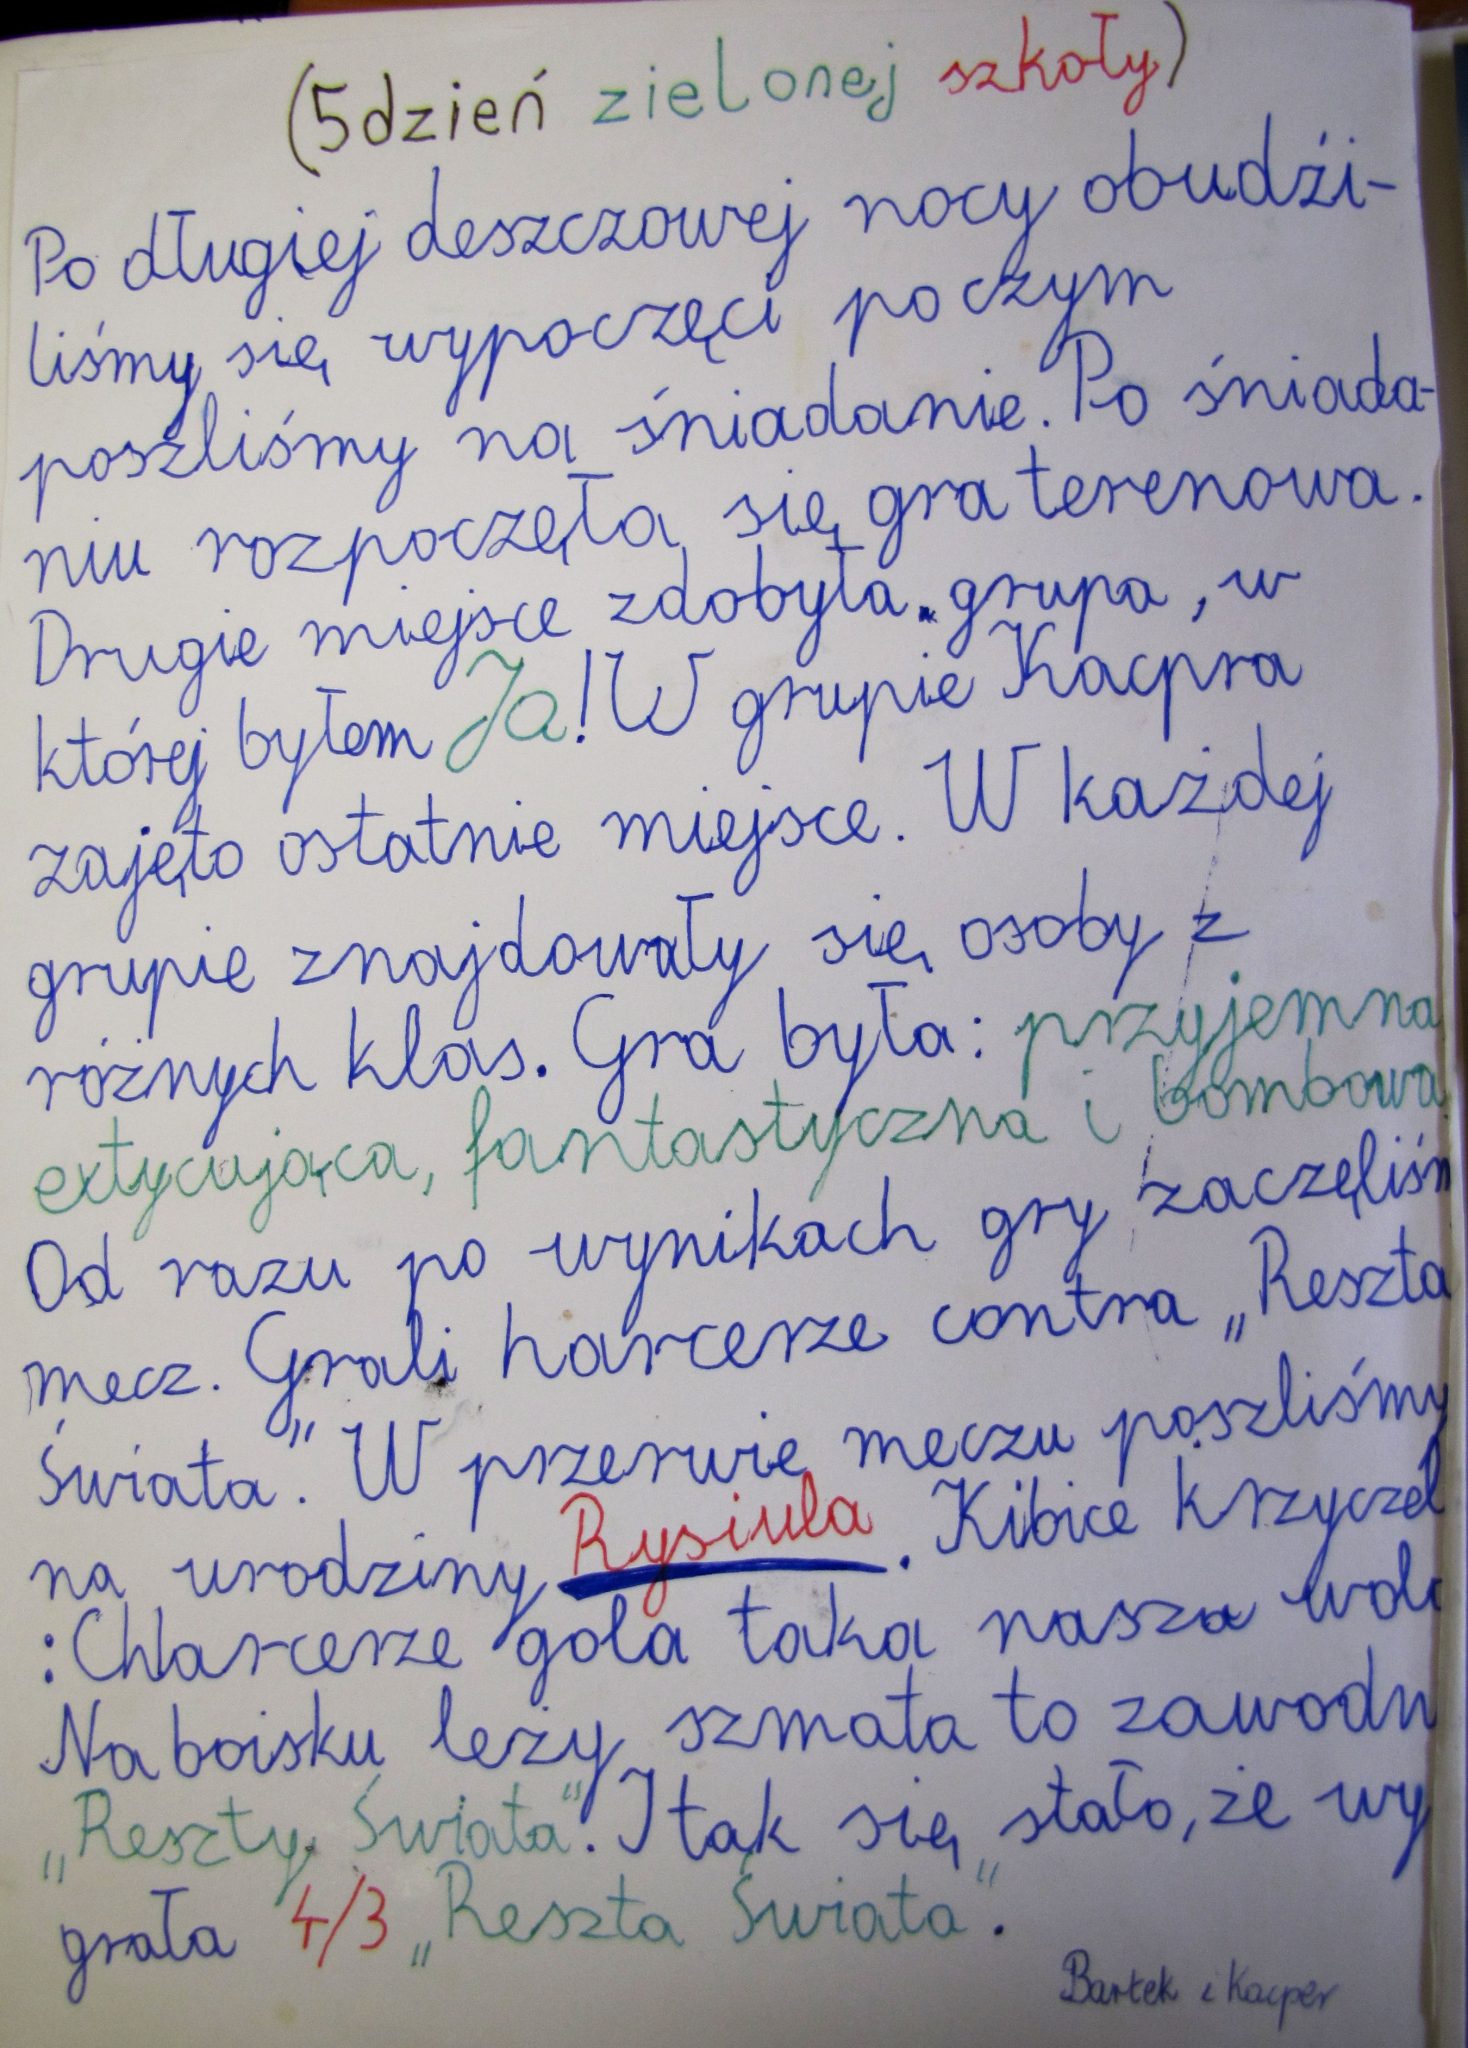 (5dzień zielonej szkoły)
Po długiej deszczowej nocy obudźi-
liśmy się wypoczęci po czym
poszliśmy na śniadanie. Po śniada-
niu rozpoczęła się gra terenowa.
Drugie miejsce zdobyła grupa, w
której byłem Ja! W grupie Kacpra
zajęto ostatnie miejsce. W każdej
grupie znajdowały się osoby z
różnych klas. Gra była: przyjemna
extycująca, fantastyczna i bombowa
Od razu po wynikach gry zaczęliśm
mecz. Grali harcerze contra „Reszta
Świata". W przerwie meczu poszliśmy
na urodziny Rysiula. Kibice krzyczel
: Chlarcerze gola taka nasza
Na boisku leży szmata to
„Reszty Świata". I tak się stało, że wy
grała 4/3 „Reszta Świata".
Bartek i Kacper